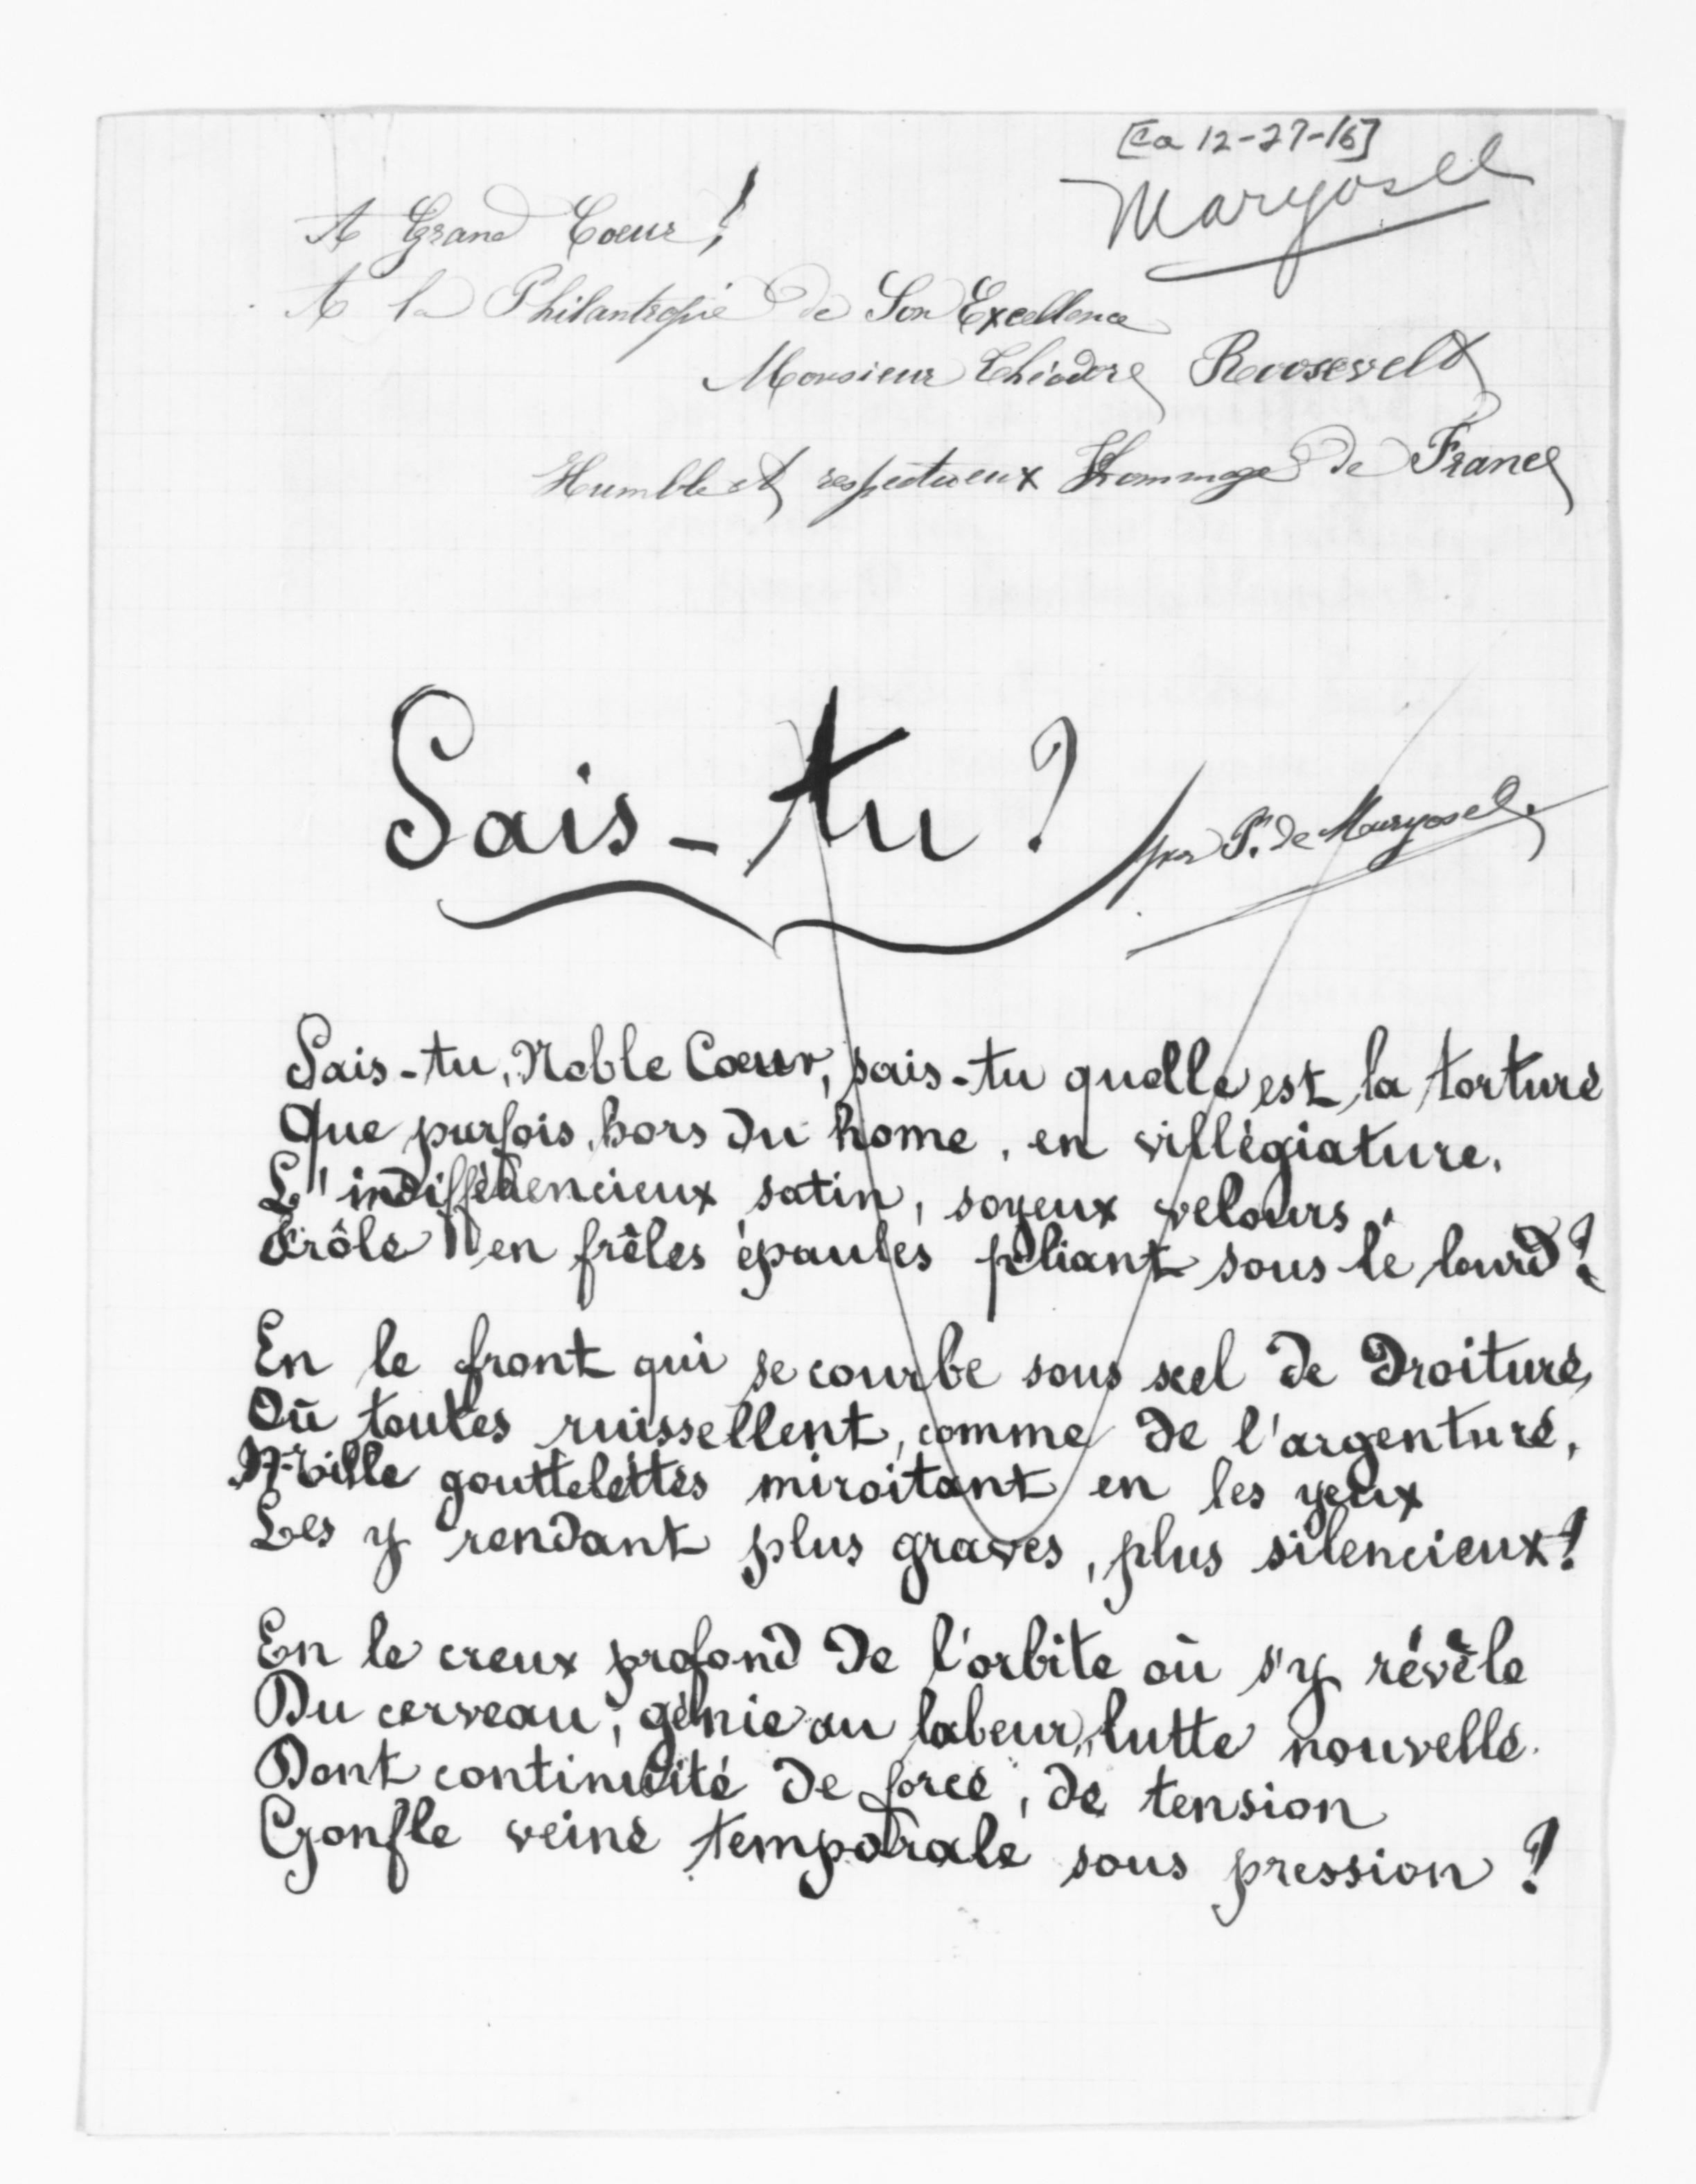 [ca 12-27-16]
Maryosel
A Grand Coeur !
A la Philantropie de Son Excellence
Monsieur Théodore Roosevelt
Humble et respectueux Hommage de France
Sais-tu ?
par P. de Maryosel.
Sais-tu, Noble Coeur, sais-tu quelle est la torture
Que parfois, hors du home, en villégiature,
L'indifférencieux satin, soyeux velours,
Frôle en frêles épaules pliant sous le lourd ?
En le front qui se courbe sous scel de Droiture,
Où toutes ruissellent, comme de l'argenture,
Mille gouttelettes miroitant en les yeux
Les y rendant plus graves, plus silencieux ?
En le creux profond de l'orbite où s'y révèle
Du cerveau, génie au labeur, lutte nouvelle
Dont continuité de force, de tension
Gonfle veine temporale sous pression ?